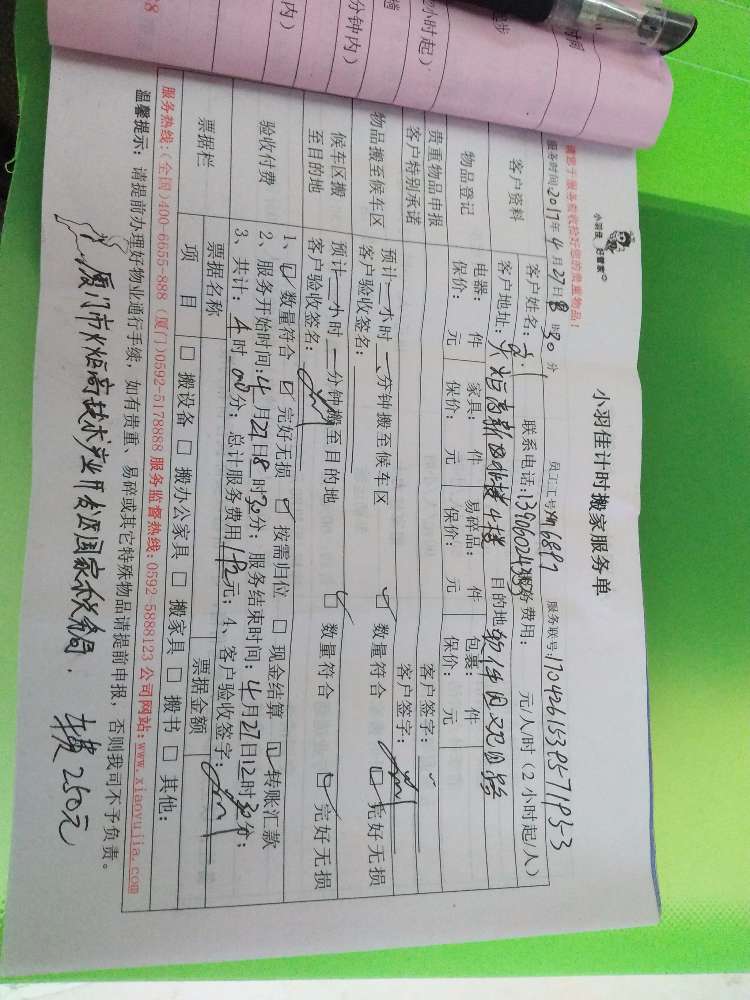 小时起)
分钟内)
内)
小羽佳 好管家
小羽佳计时搬家服务单
请您于服务前收拾好您的贵重物品!
服务时间:2017年4月27日8时30分 员工工号 6897 服务联号:
客户资料
客户姓名: 联系电话: 费用: 元/人/时(2小时起/人)
客户地址:火炬高新区 4楼 目的地:软件园
物品登记
电器: 件 家具: 件 易碎品: 件 包裹: 件
保价: 元 保价: 元 保价: 元 保价: 元
贵重物品申报 客户签字:
客户特别承诺 客户签字:
物品搬至候车区
预计 小时 分钟搬至候车区 数量符合 完好无损
客户验收签名:
候车区搬至目的地
预计 小时 分钟搬至目的地 数量符合 完好无损
客户验收签名:
验收付费
1、 数量符合 完好无损 按需归位 现金结算 转账汇款
2、服务开始时间:4月27日8时30分; 服务结束时间:4月27日12时30分;
3、共计:4时00分; 总计服务费用: 元; 4、客户验收签字:
票据栏
票据名称 票据金额
项目 □ 搬设备 □ 搬办公家具 □ 搬家具 □ 搬书 □ 其他:
服务热线:(全国)400-6655-888 (厦门)0592-5178888 服务监督热线:0592-5888123 公司网站:www.xiaoyujia.com
温馨提示:请提前办理好物业通行手续,如有贵重、易碎或其它特殊物品请提前申报,否则我司不予负责。
厦门市火炬高技术产业开发区国家税务局. 车费250元